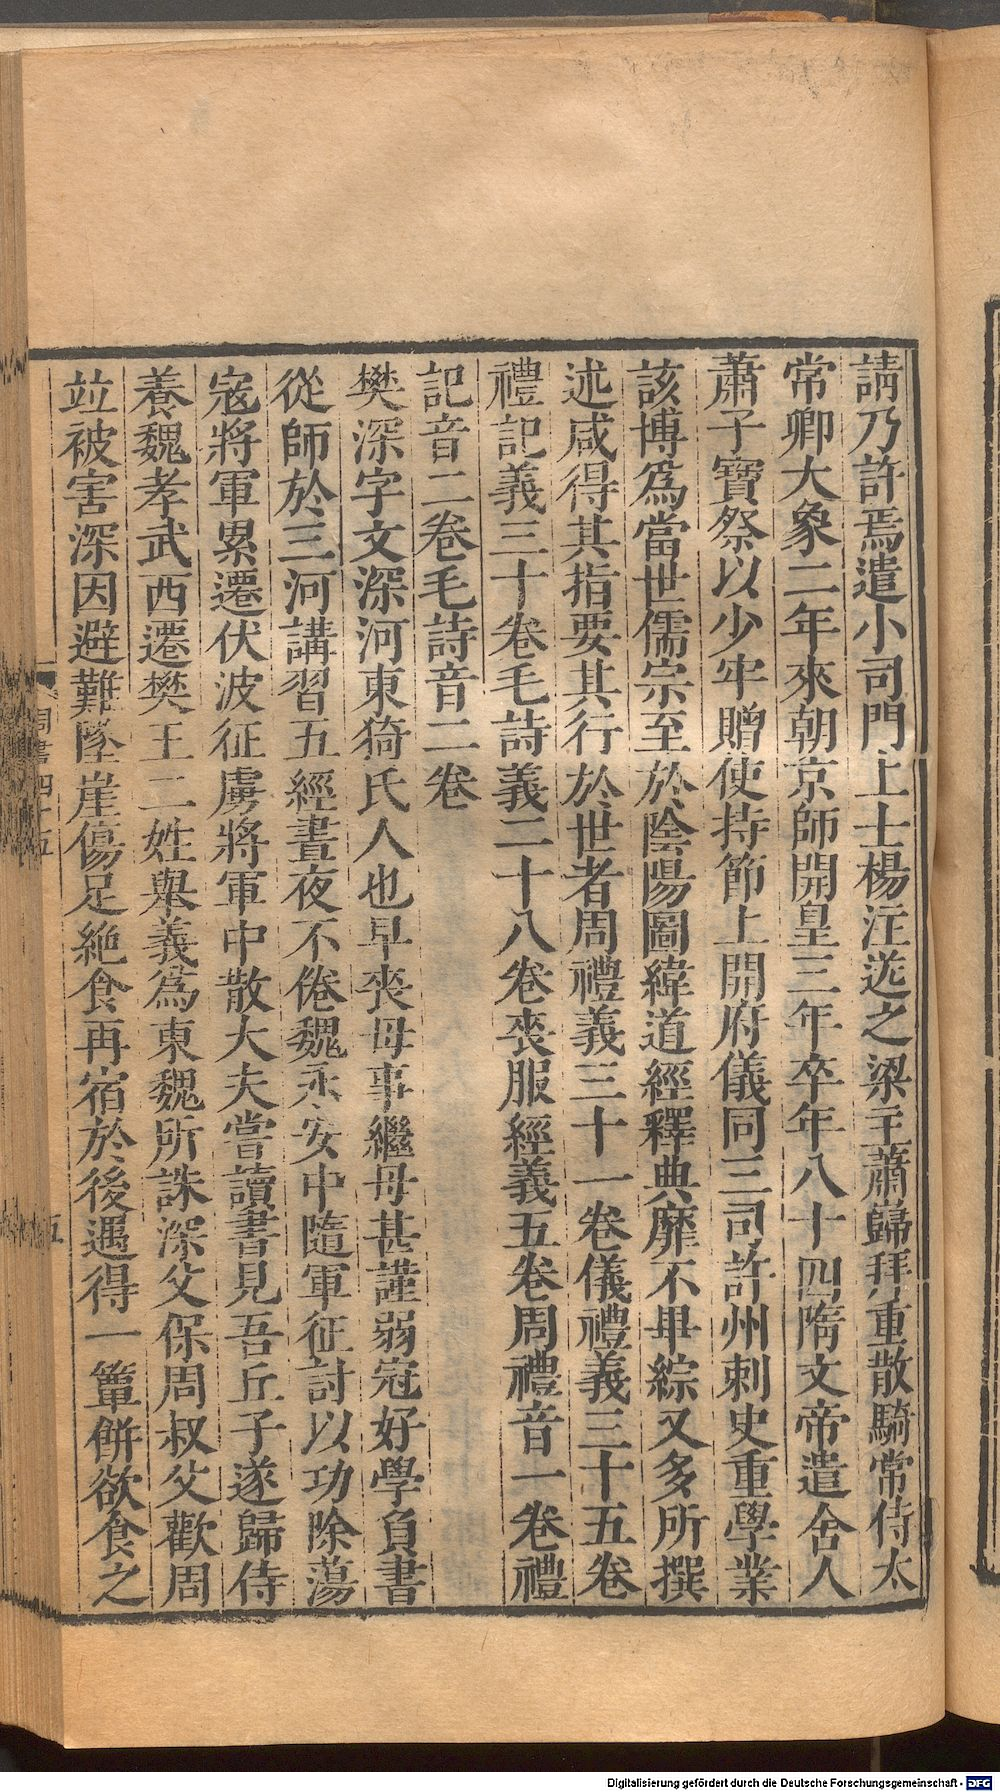 請乃許焉遣小司門上士楊汪送之梁主蕭巋拜重散騎常侍太
常卿大象二年來朝京師開皇三年卒年八十四隋文帝遣舍人
蕭子寶祭以少牢贈使持節上開府儀同三司許州刺史重學業
該博爲當世儒宗至於陰陽圖緯道經釋典靡不畢綜又多所撰
述咸得其指要其行於世者周禮義三十一卷儀禮義三十五卷
禮記義三十卷毛詩義二十八卷喪服經義五卷周禮音一卷禮
記音二卷毛詩音二卷
樊深字文深河東猗氏人也早喪母事繼母甚謹弱冠好學負書
從師於三河講習五經晝夜不倦魏永安中隨軍征討以功除蕩
寇將軍累遷伏波征虜將軍中散大夫嘗讀書見吾丘子遂歸侍
養魏孝武西遷樊王二姓舉義爲東魏所誅深父保周叔父歡周
竝被害深因避難墜崖傷足絕食再宿於後遇得一簞餅欲食之
周書四十五
五
Digitalisierung gefördert durch die Deutsche Forschungsgemeinschaft - DFG